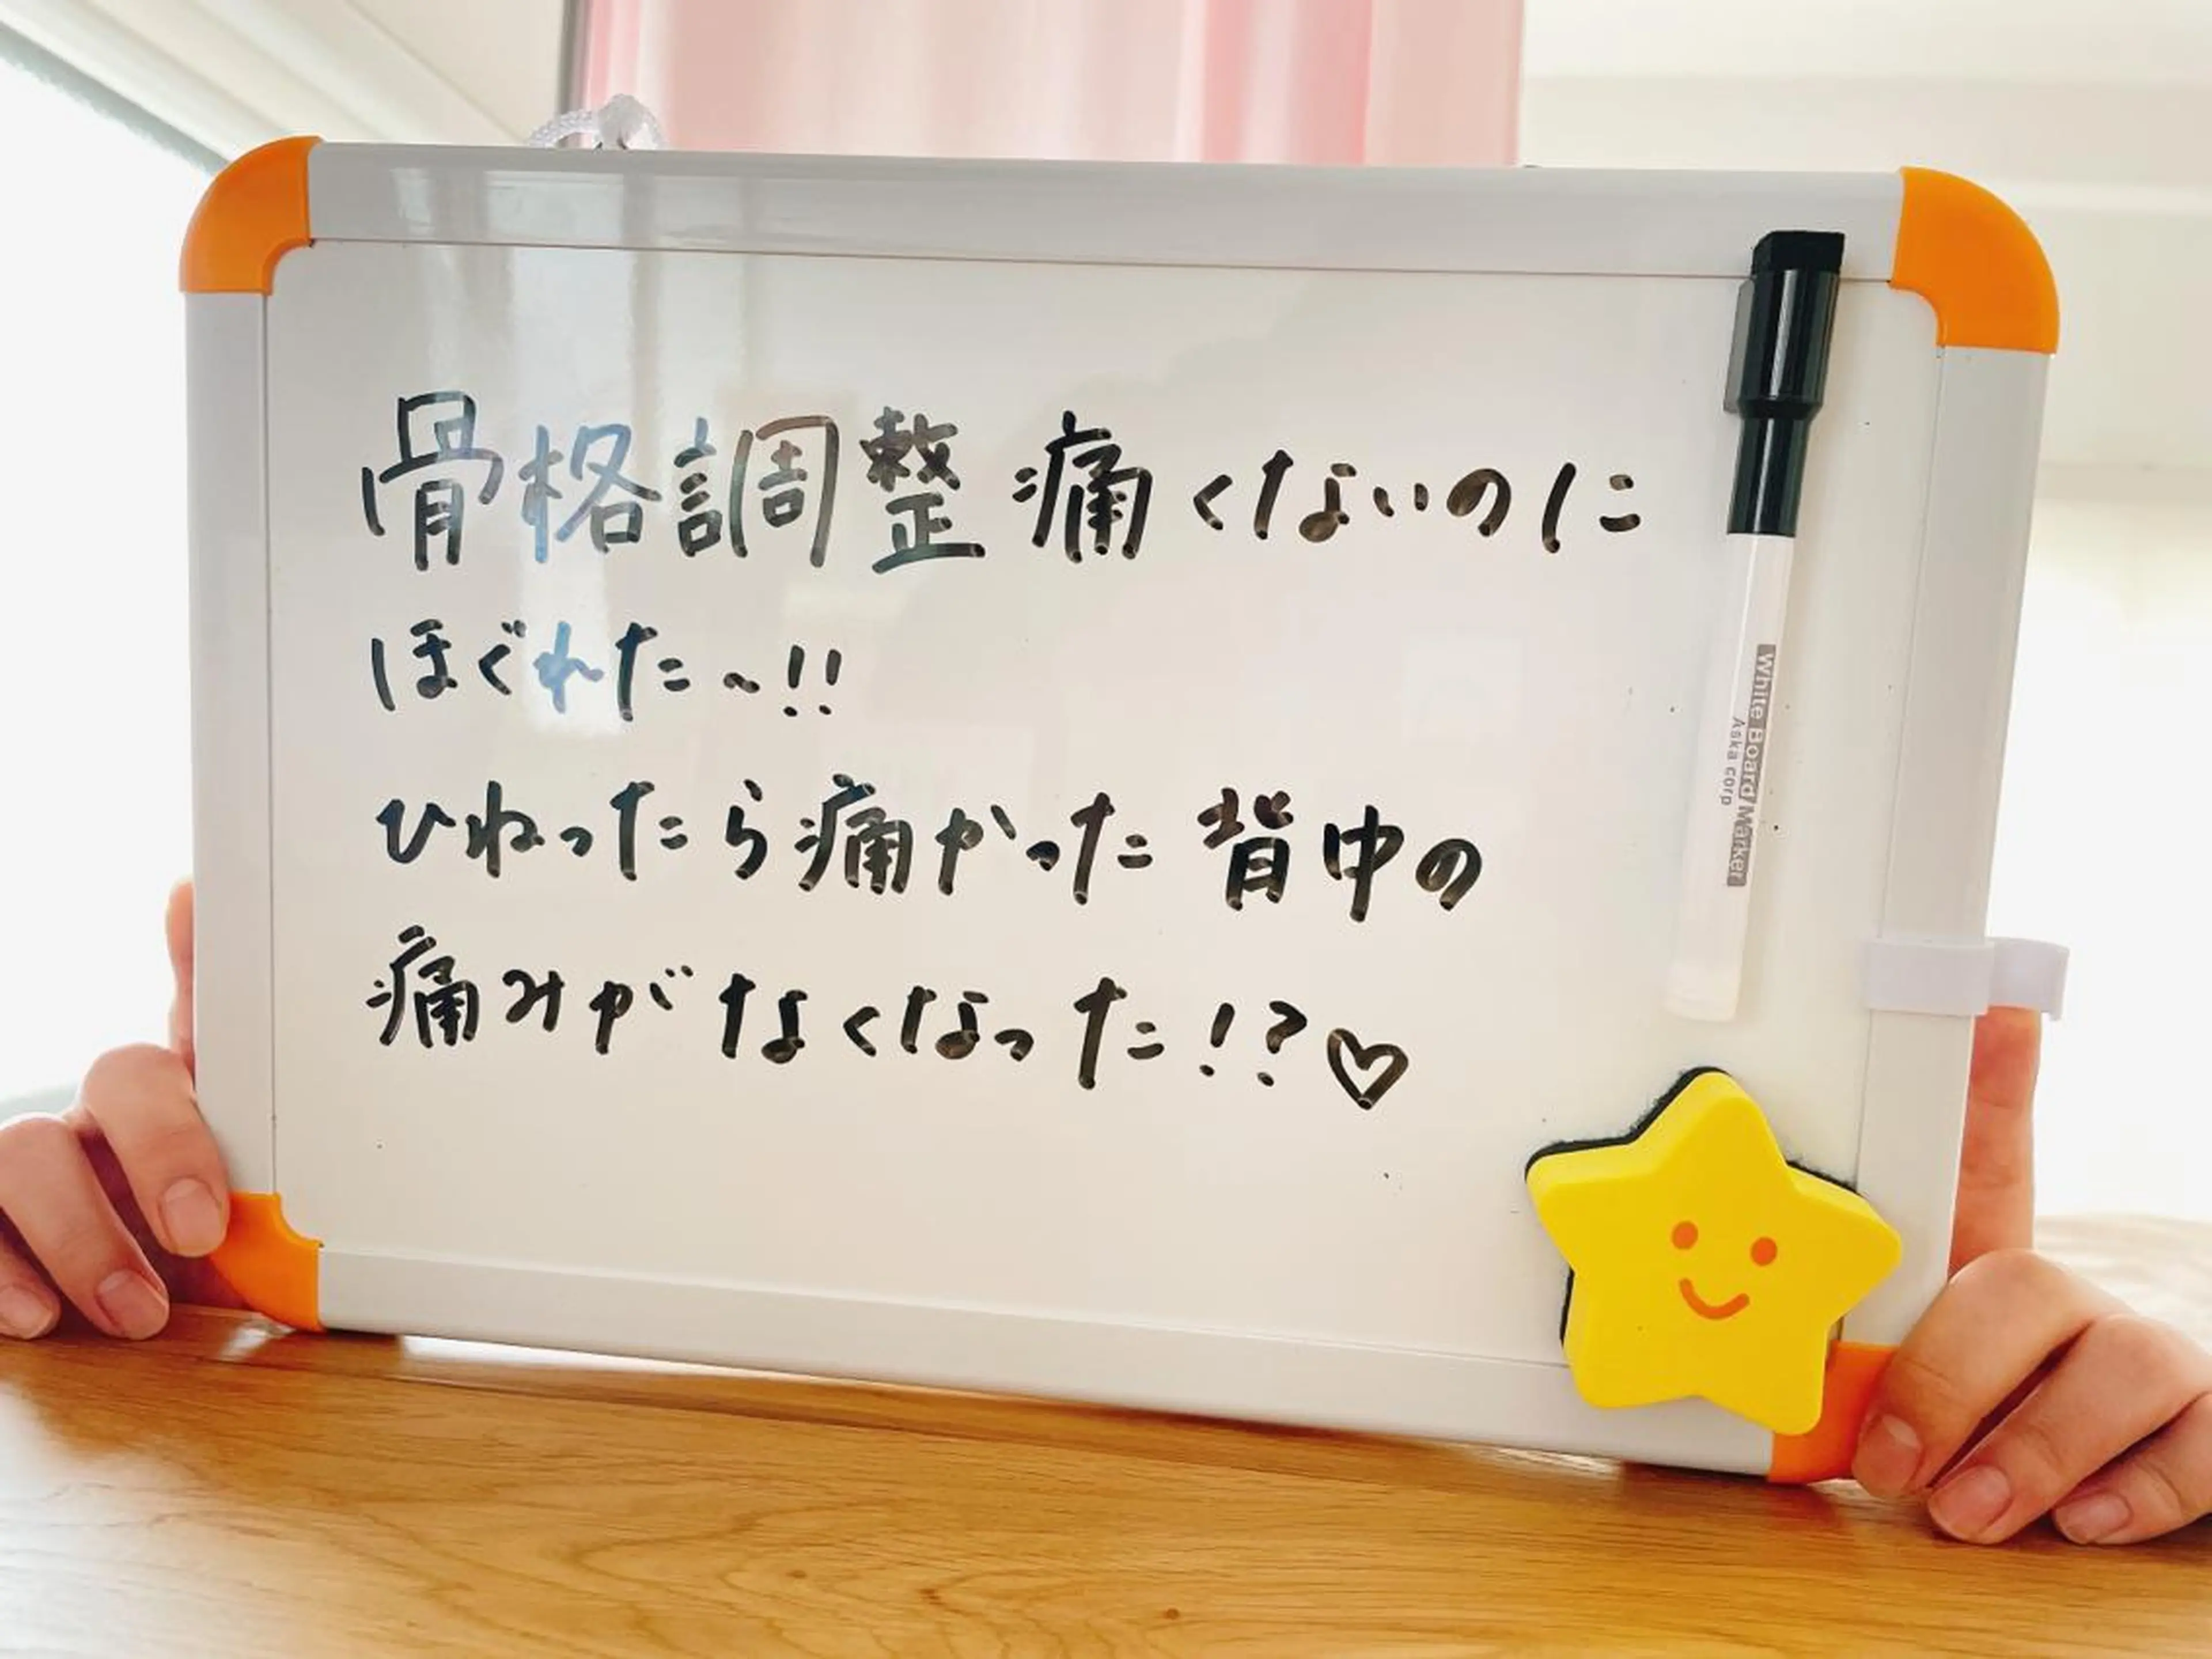 骨格調整 痛くないのに
ほぐれた〜!!
ひねったら痛かった 背中の
痛みがなくなった!?♡
White Board Marker
Aska corp